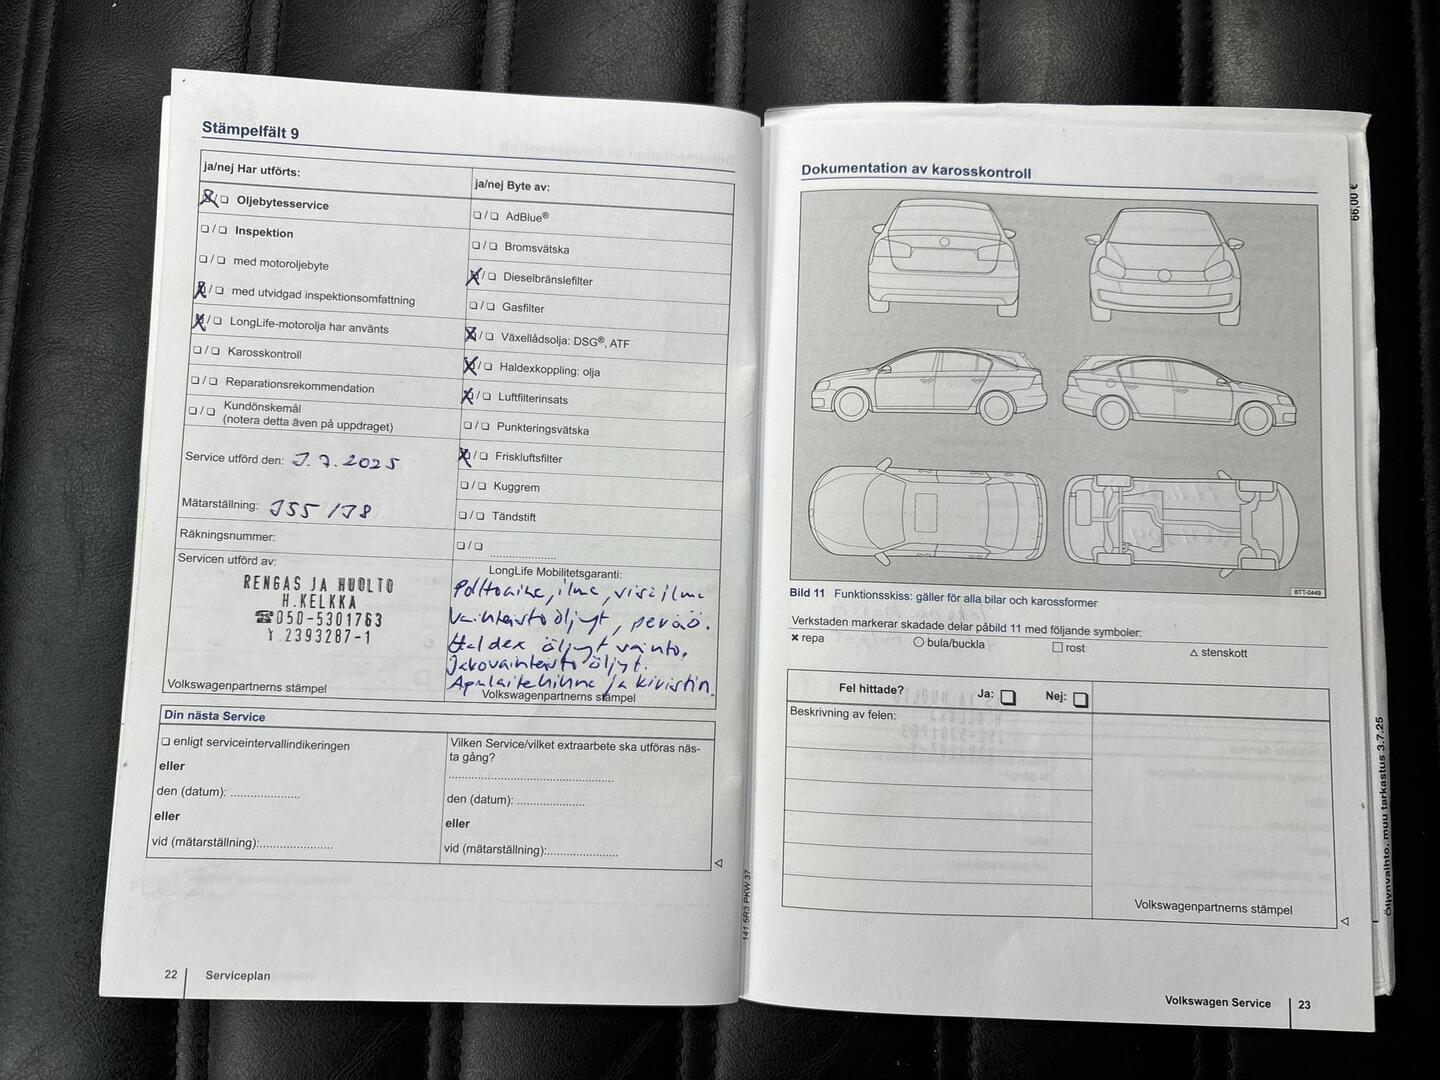 Stämpelfält 9
ja/nej Har utförts:
Oljebytesservice
Inspektion
med motoroljebyte
med utvidgad inspektionsomfattning
LongLife-motorolja har använts
Karosskontroll
Reparationsrekommendation
Kundönskemål
(notera detta även på uppdraget)
Service utförd den: 1.7.2025
Mätarställning: 155 118
Räkningsnummer:
Servicen utförd av:
RENGAS JA HUOLTO
H.KELKKA
☎050-5301763
Y.2393287-1
Volkswagenpartnerns stämpel
ja/nej Byte av:
AdBlue®
Bromsvätska
Dieselbränslefilter
Gasfilter
Växellådsolja: DSG®, ATF
Haldexkoppling: olja
Luftfilterinsats
Punkteringsvätska
Friskluftsfilter
Kuggrem
Tändstift
LongLife Mobilitetsgaranti:
Polttoaine, ilma, sisäilma
Vaihteistoöljyt, perä ö.
Haldex öljyt vaihto.
Jakovaihteisto öljyt.
Apulaitehihna ja kiristin.
Volkswagenpartnerns stämpel
Din nästa Service
enligt serviceintervallindikeringen
eller
den (datum):
eller
vid (mätarställning):
Vilken Service/vilket extraarbete ska utföras näs-
ta gång?
den (datum):
eller
vid (mätarställning):
22 Serviceplan
141.5R3.PKW.37
Dokumentation av karosskontroll
BTT-0449
Bild 11 Funktionsskiss: gäller för alla bilar och karossformer
Verkstaden markerar skadade delar påbild 11 med följande symboler:
× repa ○ bula/buckla □ rost △ stenskott
Fel hittade? Ja: Nej:
Beskrivning av felen:
Volkswagenpartnerns stämpel
Volkswagen Service 23
66,00 €
Öljynvaihto, muu tarkastus 3.7.25